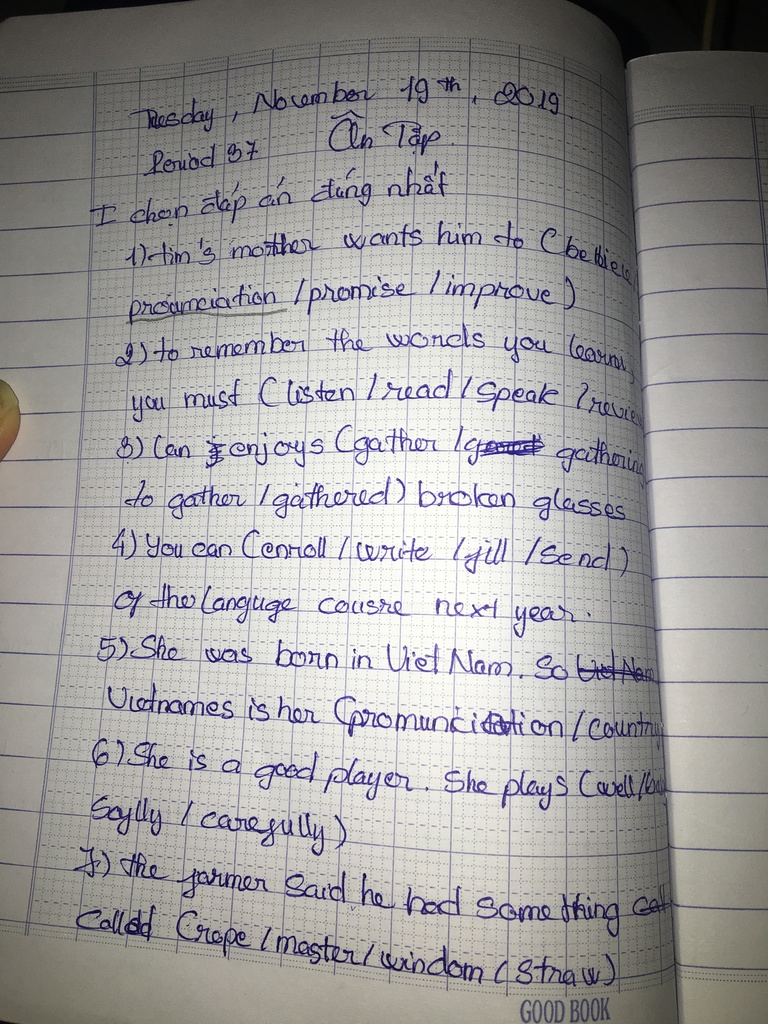 Tuesday, November 19th, 2019.
Period 37 Ôn Tập
I chọn đáp án đúng nhất
1) tim's mother wants him to (
prounciation / promise / improve)
2) to remember the words you learn,
you must (listen / read / speak / review
3) Can enjoys (gather / gathering
to gather / gathered) broken glasses
4) You can (enroll / write / fill / send)
of the languge cousre next year.
5) She was born in Viet Nam. So
Vietnames is her (pronunciation / country
6) She is a good player. She plays (well /
/ carefully)
7) the farmer said he had something
called (rope / master / windom ( straw)
GOOD BOOK